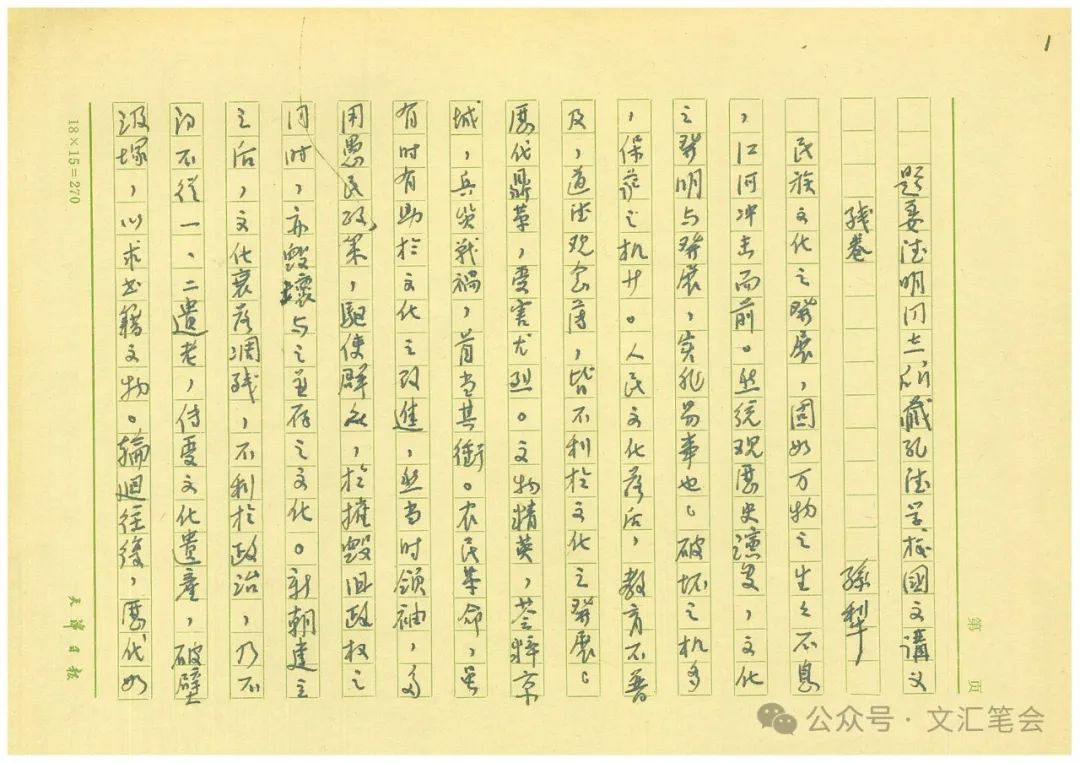 1
第 页
题姜德明同志所藏孔德学校國文講义
残卷 孫犁
民族文化之發展，固如万物之生生不息
，江河冲击而前。然统观歷史演变，文化
之發明与發展，实非易事也。破坏之机多
，保护之机少。人民文化落后，教育不普
及，道德观念薄，皆不利於文化之發展。
歷代鼎革，受害尤烈。文物精英，荟粹京
城，兵災戰禍，首当其衝。农民革命，虽
有时有助於文化之改進，然当时领袖，多
用愚民政策，驅使群众，於摧毁旧政权之
同时，亦毁壞与之並存之文化。新朝建立
之后，文化衰落凋残，不利於政治，乃不
得不從一、二遺老，传受文化遺產，破壁
汲塚，以求书籍文物。輪迴往復，歷代如
18×15=270
天津日报
公众号·文汇笔会